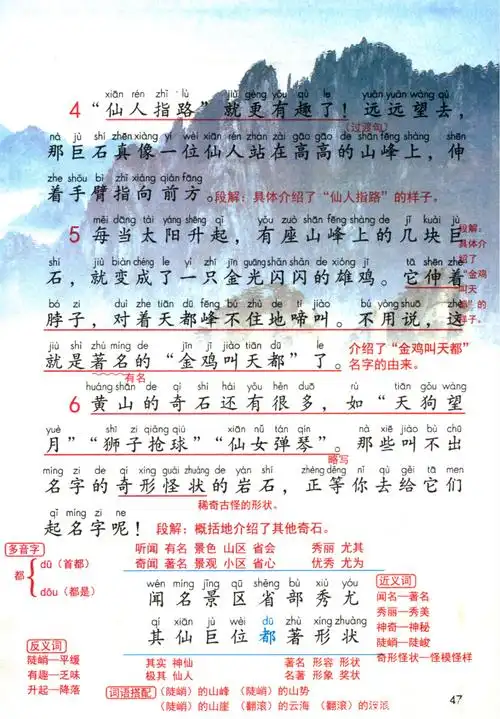 xiān rén zhǐ lù jiù gèng yǒu qù le yuǎn yuǎn wàng qù
4 “仙人指路”就更有趣了！远远望去，
(过渡句)
nà jù shí zhēn xiàng yí wèi xiān rén zhàn zài gāo gāo de shān fēng shàng shēn
那巨石真像一位仙人站在高高的山峰上，伸
zhe shǒu bì zhǐ xiàng qián fāng
着手臂指向前方。段解：具体介绍了“仙人指路”的样子。
měi dāng tài yáng shēng qǐ yǒu zuò shān fēng shàng de jǐ kuài jù
5 每当太阳升起，有座山峰上的几块巨
段解：具体介绍了“金鸡叫天都”的样子。
shí jiù biàn chéng le yì zhī jīn guāng shǎn shǎn de xióng jī tā shēn zhe
石，就变成了一只金光闪闪的雄鸡。它伸着
bó zi duì zhe tiān dū fēng bú zhù de tí jiào bú yòng shuō zhè
脖子，对着天都峰不住地啼叫。不用说，这
jiù shì zhù míng de jīn jī jiào tiān dū le
就是著名的“金鸡叫天都”了。
有名
介绍了“金鸡叫天都”
名字的由来。
huáng shān de qí shí hái yǒu hěn duō rú tiān gǒu wàng
6 黄山的奇石还有很多，如“天狗望
yuè shī zi qiǎng qiú xiān nǚ tán qín nà xiē jiào bù chū
月”“狮子抢球”“仙女弹琴”。那些叫不出
略写
míng zi de qí xíng guài zhuàng de yán shí zhèng děng nǐ qù gěi tā men
名字的奇形怪状的岩石，正等你去给它们
稀奇古怪的形状。
qǐ míng zi ne
起名字呢！段解：概括地介绍了其他奇石。
多音字
都
dū（首都）
dōu（都是）
听闻 有名 景色 山区 省会 秀丽 尤其
奇闻 著名 景观 小区 省心 优秀 尤为
wén míng jǐng qū shěng bù xiù yóu
闻名景区省部秀尤
qí xiān jù wèi dū zhù xíng zhuàng
其仙巨位都著形状
其实 神仙 著名 形容 形状
极其 仙人 名著 形象 奖状
近义词
闻名—著名
秀丽—秀美
神奇—神秘
陡峭—陡峻
奇形怪状—怪模怪样
反义词
陡峭—平缓
有趣—乏味
升起—降落
词语搭配
（陡峭）的山峰 （陡峭）的山势
（陡峭）的山崖 （翻滚）的云海 （翻滚）的波浪
47